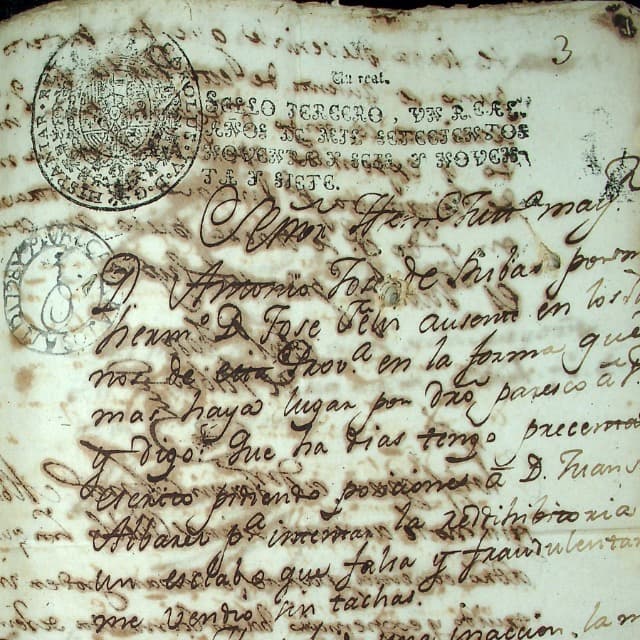 3
Un real.
SELLO TERCERO, UN REAL,
AÑOS DE MIL SETECIENTOS
NOVENTA Y SEIS Y NOVEN
TA Y SIETE.
D. Antonio Jose de Ribas por
herm.º D. Jose Felix ausente en los
de esta Prov.ª en la forma que
mas haya lugar por dro paresco à
y digo: Que ha dias tengo precentado
escrito pidiendo posiciones à D. Juan
p.ª intentar la redihibitoria
un esclabo que falsa y fraudulentam
me vendio sin tachas.
la